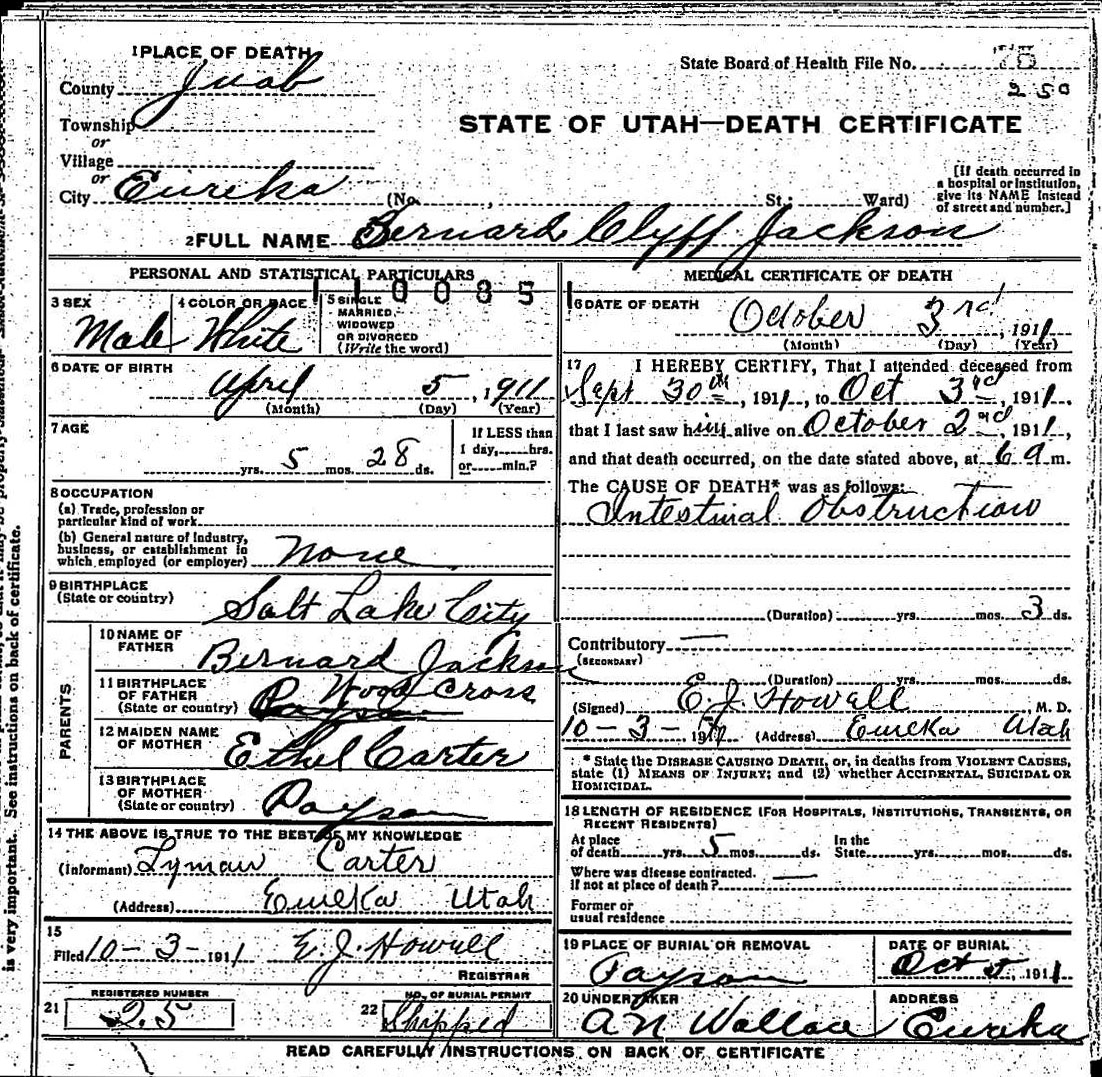 1 PLACE OF DEATH
County Juab
State Board of Health File No. 78
250
Township
or
Village
or
City Eureka (No. , St.; Ward)
STATE OF UTAH—DEATH CERTIFICATE
[If death occurred in
a hospital or institution,
give its NAME instead
of street and number.]
2 FULL NAME Bernard Clyff Jackson
PERSONAL AND STATISTICAL PARTICULARS
110085
3 SEX
Male
4 COLOR OR RACE
White
5 SINGLE
MARRIED,
WIDOWED
OR DIVORCED
(Write the word)
6 DATE OF BIRTH
April 5, 1911
(Month) (Day) (Year)
7 AGE
yrs. 5 mos. 28 ds.
If LESS than
1 day, hrs.
or min.?
8 OCCUPATION
(a) Trade, profession or
particular kind of work
(b) General nature of Industry,
business, or establishment in
which employed (or employer) None
9 BIRTHPLACE
(State or country)
Salt Lake City
PARENTS
10 NAME OF
FATHER
Bernard Jackson
11 BIRTHPLACE
OF FATHER
(State or country)
Wood Cross
Payson
12 MAIDEN NAME
OF MOTHER
Ethel Carter
13 BIRTHPLACE
OF MOTHER
(State or country) Payson
14 THE ABOVE IS TRUE TO THE BEST OF MY KNOWLEDGE
(Informant) Lyman Carter
(Address) Eureka Utah
15
Filed 10-3-1911 E. J. Howell
REGISTRAR
21 REGISTERED NUMBER
25
22 NO. OF BURIAL PERMIT
Shipped
MEDICAL CERTIFICATE OF DEATH
16 DATE OF DEATH
October 3rd, 1911
(Month) (Day) (Year)
17 I HEREBY CERTIFY, That I attended deceased from
Sept 30th, 1911, to Oct 3rd, 1911,
that I last saw him alive on October 2nd, 1911,
and that death occurred, on the date stated above, at 6 a m.
The CAUSE OF DEATH* was as follows:
Intestinal Obstruction
(Duration) yrs. mos. 3 ds.
Contributory —
(SECONDARY)
(Duration) yrs. mos. ds.
(Signed) E. J. Howell M. D.
10-3-1911 (Address) Eureka Utah
* State the DISEASE CAUSING DEATH, or, in deaths from VIOLENT CAUSES,
state (1) MEANS OF INJURY; and (2) whether ACCIDENTAL, SUICIDAL OR
HOMICIDAL.
18 LENGTH OF RESIDENCE (FOR HOSPITALS, INSTITUTIONS, TRANSIENTS, OR
RECENT RESIDENTS)
At place
of death yrs. 5 mos. ds.
In the
State yrs. mos. ds.
Where was disease contracted.
if not at place of death? —
Former or
usual residence
19 PLACE OF BURIAL OR REMOVAL
Payson
DATE OF BURIAL
Oct 5, 1911
20 UNDERTAKER
A N Wallace
ADDRESS
Eureka
READ CAREFULLY INSTRUCTIONS ON BACK OF CERTIFICATE
is very important. See instructions on back of certificate.